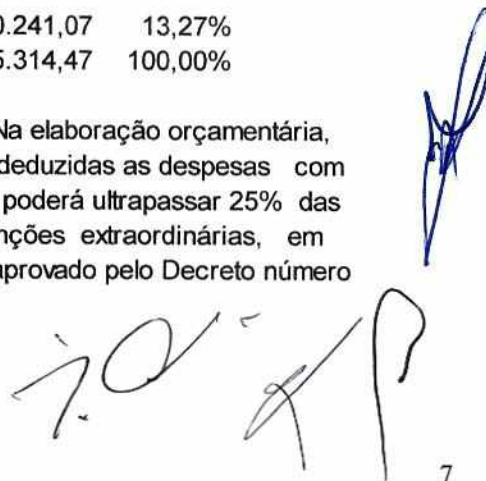 0.241,07 13,27%
5.314,47 100,00%
Na elaboração orçamentária,
deduzidas as despesas com
poderá ultrapassar 25% das
nções extraordinárias, em
aprovado pelo Decreto número
7